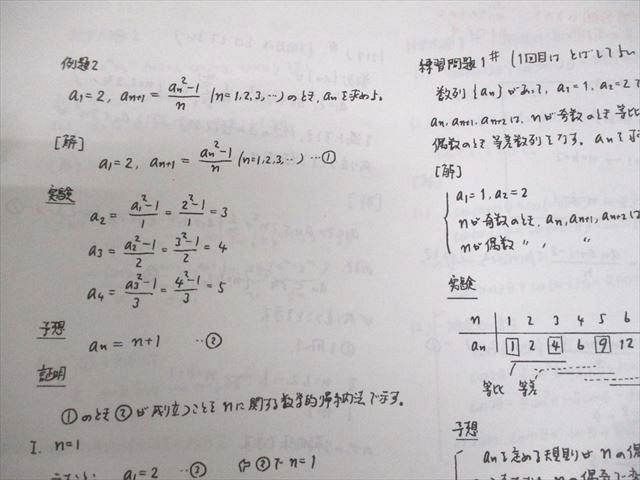 例題2
a₁=2, aₙ₊₁ = (aₙ²-1)/n (n=1,2,3,…)のとき, aₙを求めよ。
[解]
a₁=2, aₙ₊₁ = (aₙ²-1)/n (n=1,2,3,…) …①
実験
a₂ = (a₁²-1)/1 = (2²-1)/1 = 3
a₃ = (a₂²-1)/2 = (3²-1)/2 = 4
a₄ = (a₃²-1)/3 = (4²-1)/3 = 5
予想
aₙ = n+1 …②
証明
①のとき②が成立つことをnに関する数学的帰納法で示す。
I. n=1
a₁=2 …③ ⇦②で n=1
練習問題1# (1回目は とばしてよい
数列{aₙ}があって, a₁=1, a₂=2で
aₙ, aₙ₊₁, aₙ₊₂は, nが奇数のとき等比
偶数のとき等差数列をなす。aₙを求
[解]
a₁=1, a₂=2
nが奇数のとき, aₙ, aₙ₊₁, aₙ₊₂は
nが偶数 〃 , 〃
実験
n 1 2 3 4 5 6
aₙ 1 2 4 6 9 12
等比 等差
予想
aₙを定める規則はnの偶